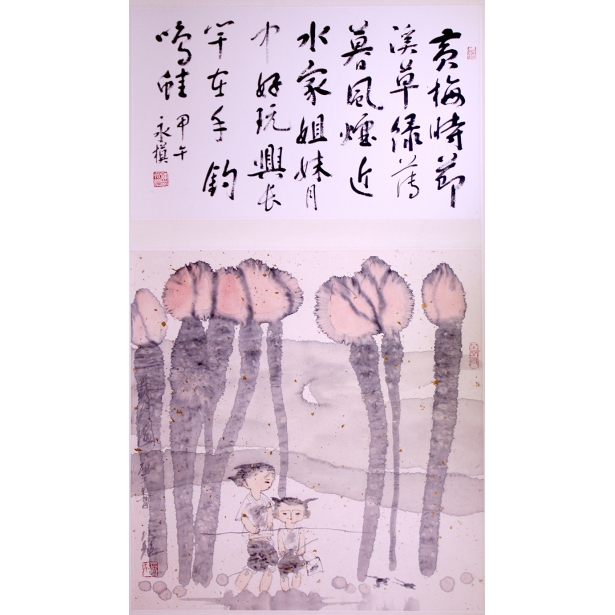 黄梅時節
溪草绿薄
暮風煙近
水家姐妹月
中好玩興長
竿在手釣
鳴蛙
甲午